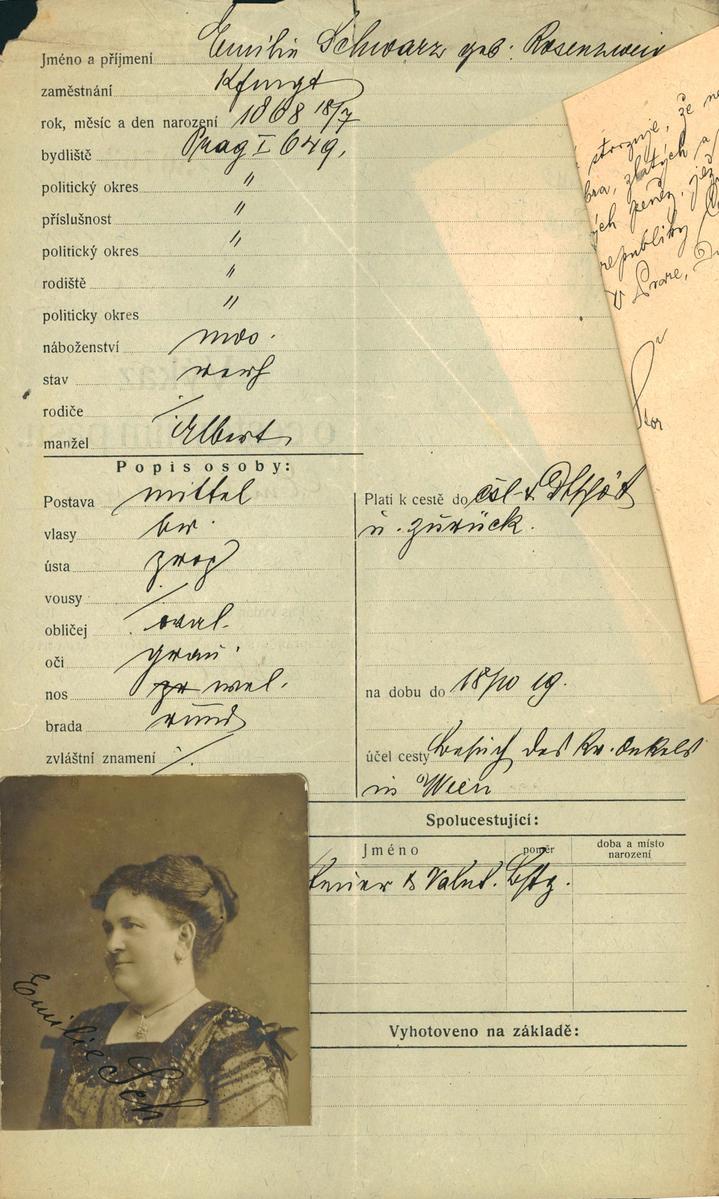 Jméno a příjmení Emilie Schwarz geb: Rosenzweig
zaměstnání Kfmgt
rok, měsíc a den narození 1868 18/7
bydliště Prag I 649,
politický okres "
příslušnost "
politický okres "
rodiště "
politicky okres "
náboženství mos.
stav verh
rodiče /
manžel Albert
Popis osoby:
Postava mittel
vlasy br.
ústa prop
vousy /
obličej oval.
oči grau.
nos wel.
brada rund
zvláštní znamení ./.
Platí k cestě do čsl- & Dtschöst
u. zurück.
na dobu do 18/10 19.
účel cesty Besuch des kr. Onkels
in Wien
Spolucestující:
Jméno poměr doba a místo
narození
Steuer & Valut. Bstg.
Vyhotoveno na základě:
Emilie Sch
stvrzuje, že ne
bra, zlatých a
ých peněz, jež
republiky
V Praze,